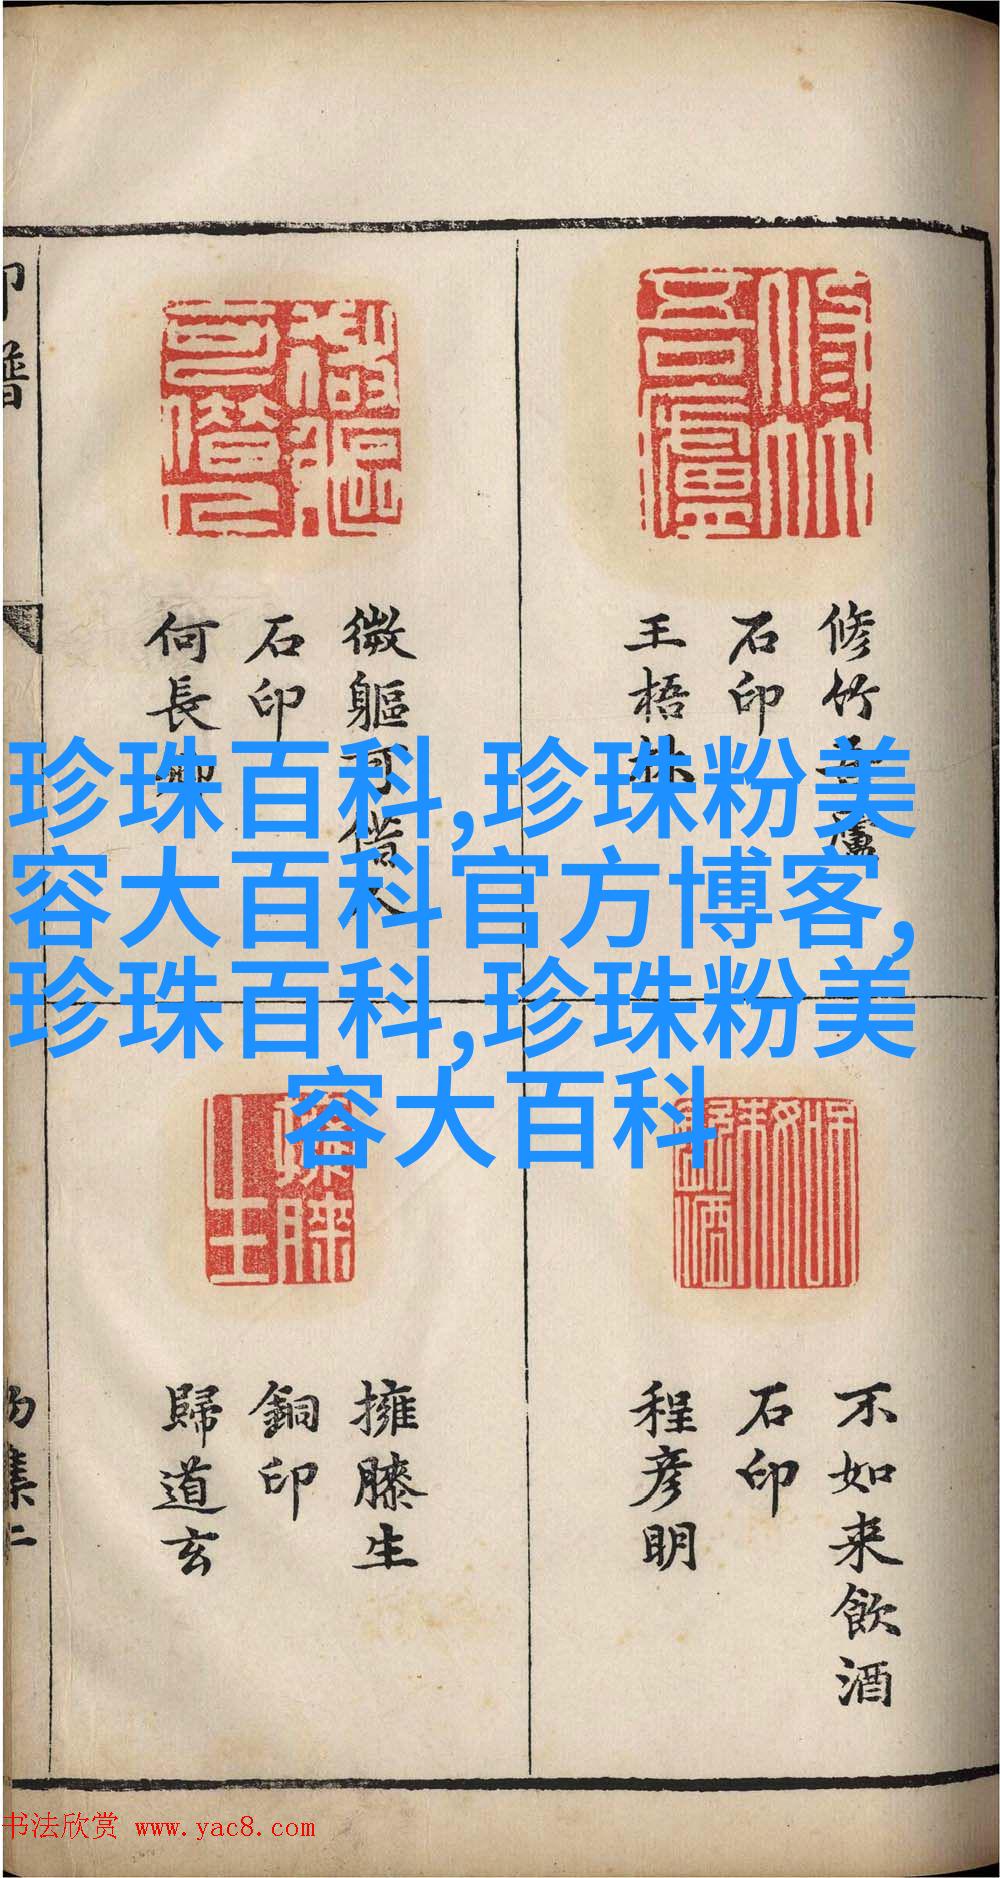 修竹吾廬
石印
王梧林
微軀可借人
石印
何長卿
不如來飲酒
石印
程彦明
擁膝生
銅印
歸道玄
印譜
珍珠百科,珍珠粉美
容大百科官方博客,
珍珠百科,珍珠粉美
容大百科
书法欣赏 www.yac8.com